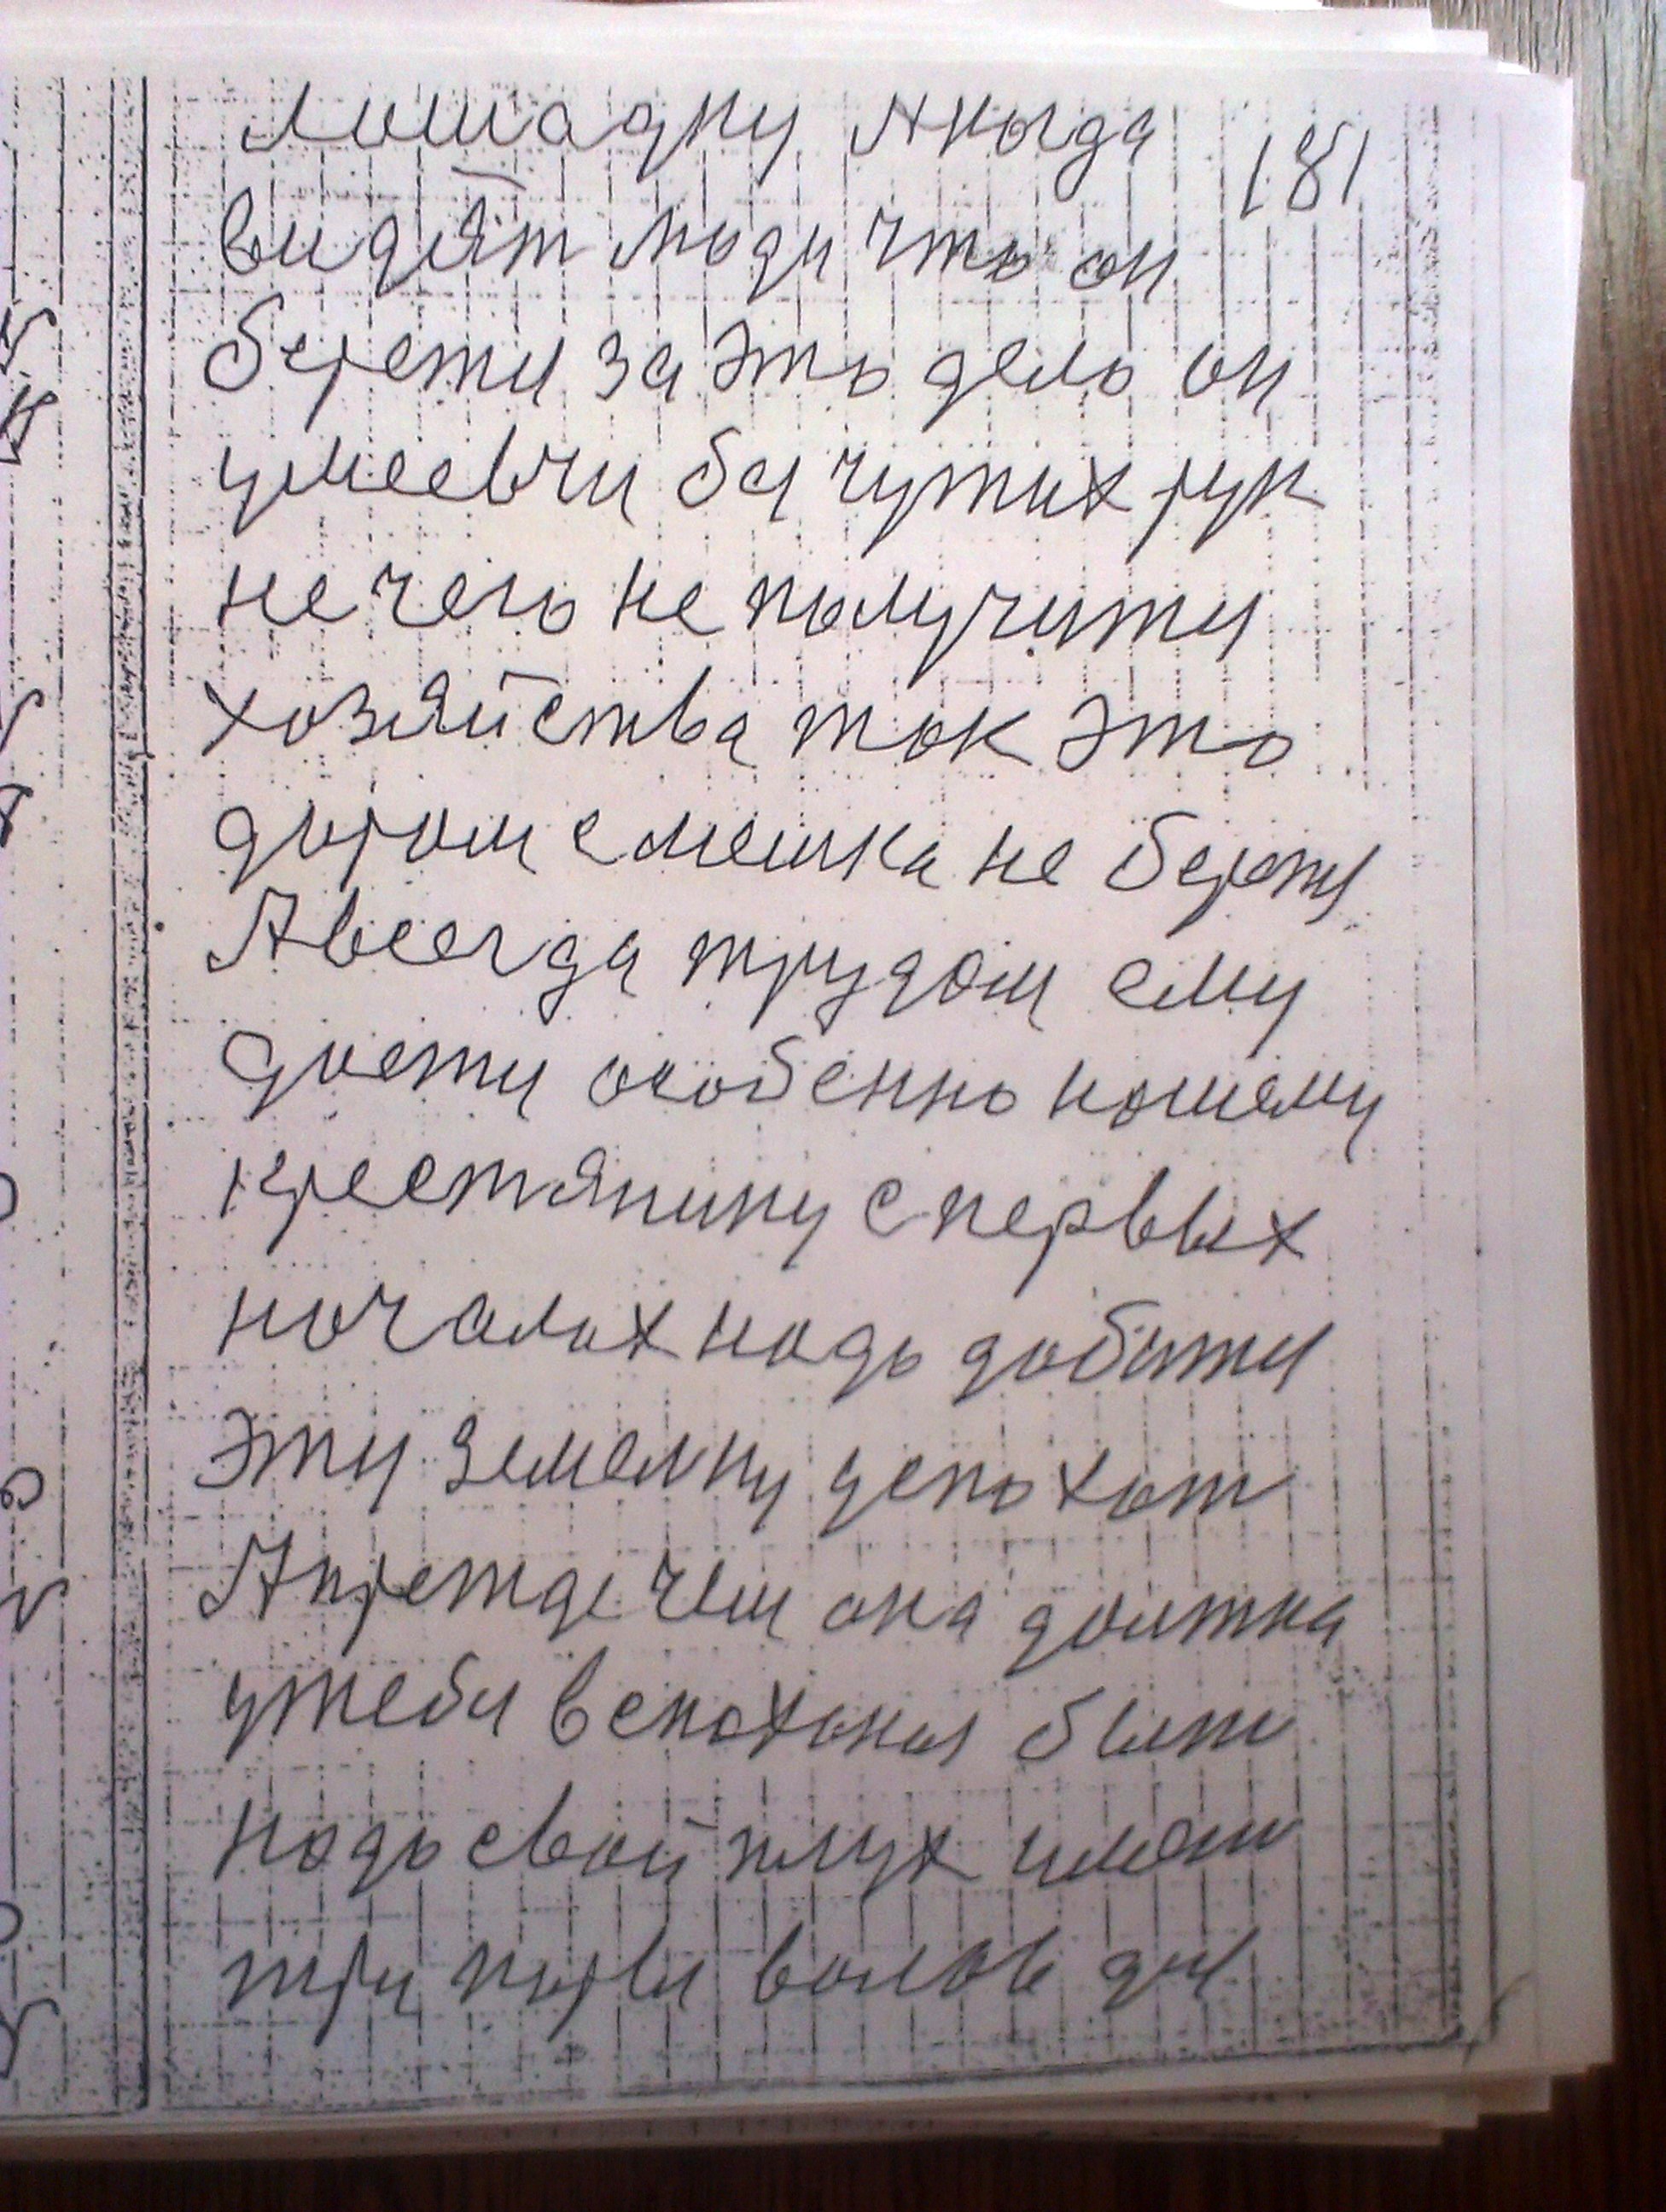 лошадку Акогда
181
видят люди что он
берети за это дело он
умеевчи без чутих рук
не чего не получити
хозяйства ток это
даром с мешка не берети
Авсегда трудом ему
даети особенно нашему
крестянину с первых
началах надо добити
эту земелку успохат
Апретде чем она долтна
утебя вспохоная быт
надо свой плух имет
три пары волов да